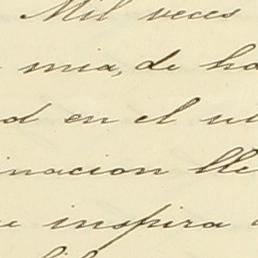 Mil veces
mia, de ha
d en el ul
inacion lle
e inspira